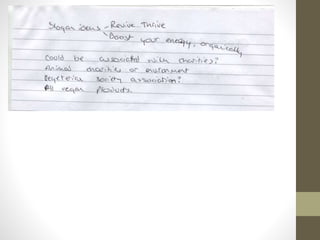 Slogan ideas - Revive Thrive
Boost your energy, organically
Could be associated with charities?
Animal charities or enviroment
Vegeterian society association?
All vegan products.